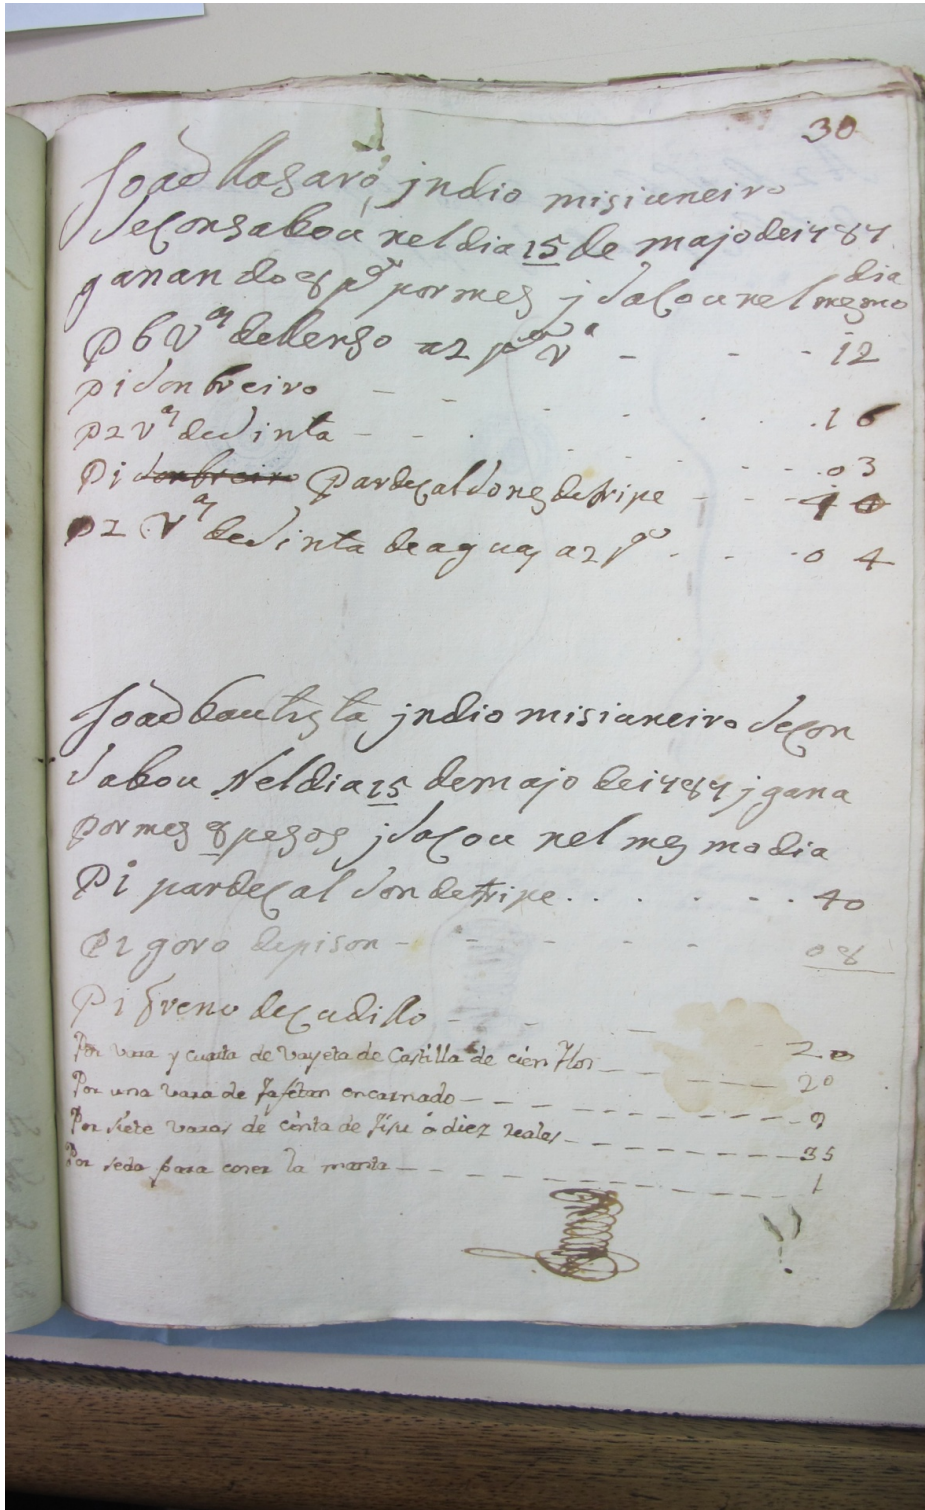 30
Joaõ llasaro, jndio misiuneiro
seConsabou nel dia 15 de majo de i787
ganando 8 ps por mes j sacou nel mesmo dia
P 6 Vas delienso a 2 ps Va - - - 12
P i sonbreiro - - - - - - 16
P 2 Vas de sinta - - - - - - 03
P i sonbreiro Par de Calsones de tripe - - - 40
P 2 Vas de sinta de aguas a 2 ps - - - 0 4
Joaõ bautista jndio misiuneiro seCon
sabou Nel dia 15 de majo de i787 j gana
por mes 8 pesos j sacou nel mes mo dia
P i par de Cal son de tripe . . . . . . 40
P 1 goro de pison - - - - - 08
P i freno de Cudillo - - - 20
Por vara y cuarta de Vayeta de Castilla de cien Flor - - - 20
Por una vara de Tafetan encarnado - - - - - - 9
Por siete varas de cinta de Tisu á diez reales - - - - - 35
Por seda para coser la manta - - - - - - 1